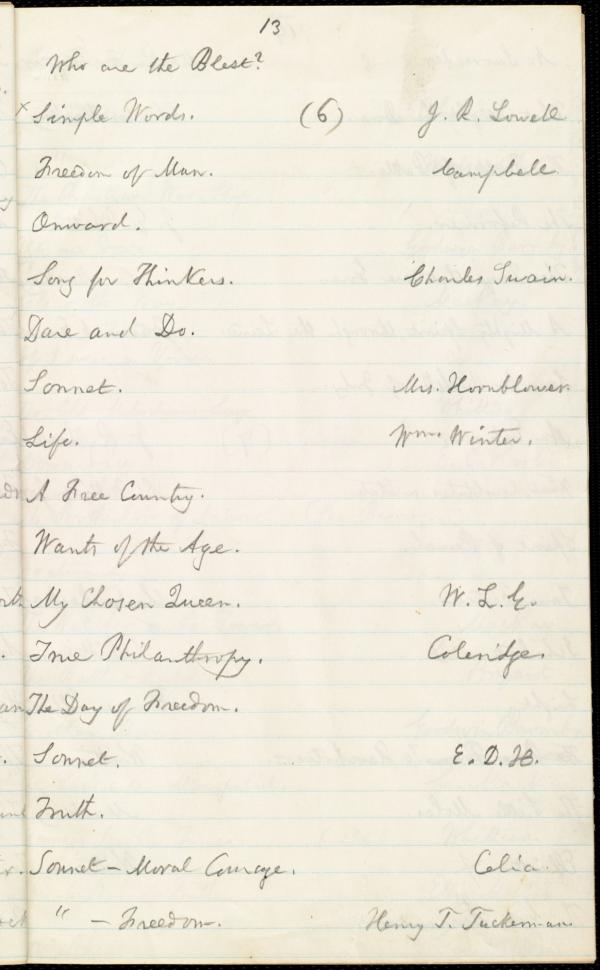 13
Who are the Blest?
x Simple Words. (6) J. R. Lowell
Freedom of Man. Campbell
Onward.
Song for Thinkers. Charles Swain.
Dare and Do.
Sonnet. Mrs. Hornblower.
Life. Wm. Winter.
A Free Country.
Wants of the Age.
My Chosen Queen. W. L. G.
True Philanthropy. Coleridge.
The Day of Freedom.
Sonnet. E. D. H.
Truth.
Sonnet – Moral Courage. Celia.
" – Freedom. Henry T. Tuckerman